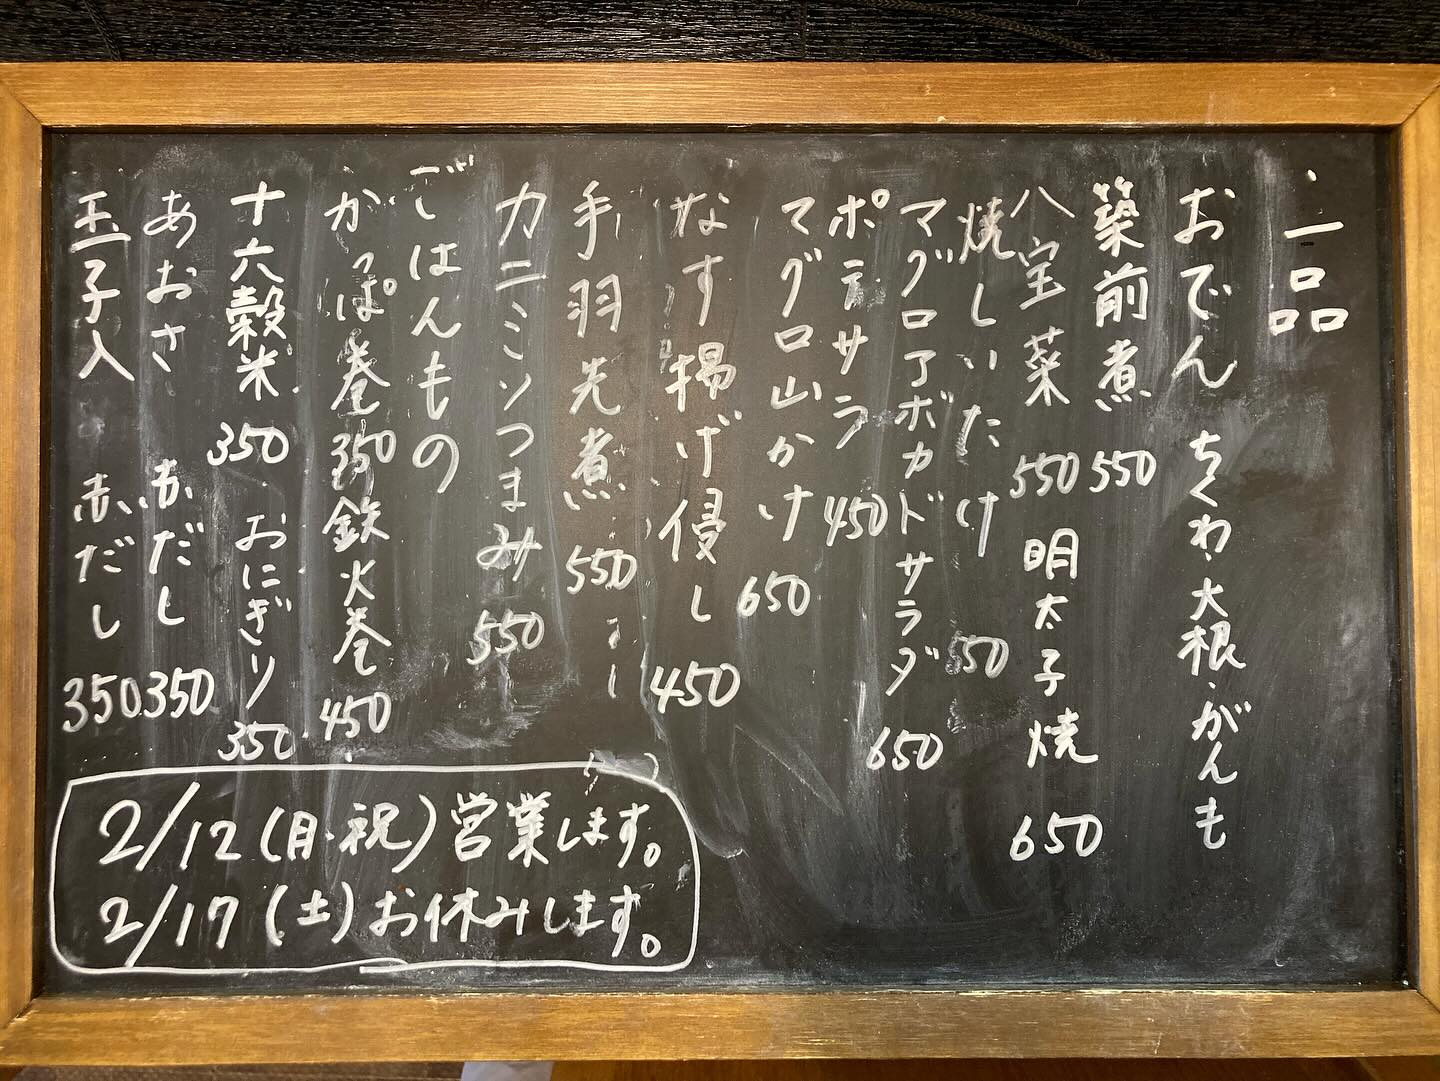 ・一品
おでん ちくわ・大根・がんも
築前煮 550
八宝菜 550 明太子焼 650
焼しいたけ 550
マグロアボカドサラダ 650
ポテサラ 450
マグロ山かけ 650
なす揚げ侵し 450
手羽先煮 550
カニミソつまみ 550
ごはんもの
かっぱ巻 350 鉄火巻 450
十六穀米 350 おにぎり 350
あおさ 赤だし 350
玉子入 赤だし 350
2/12(月・祝)営業します。
2/17(土)お休みします。